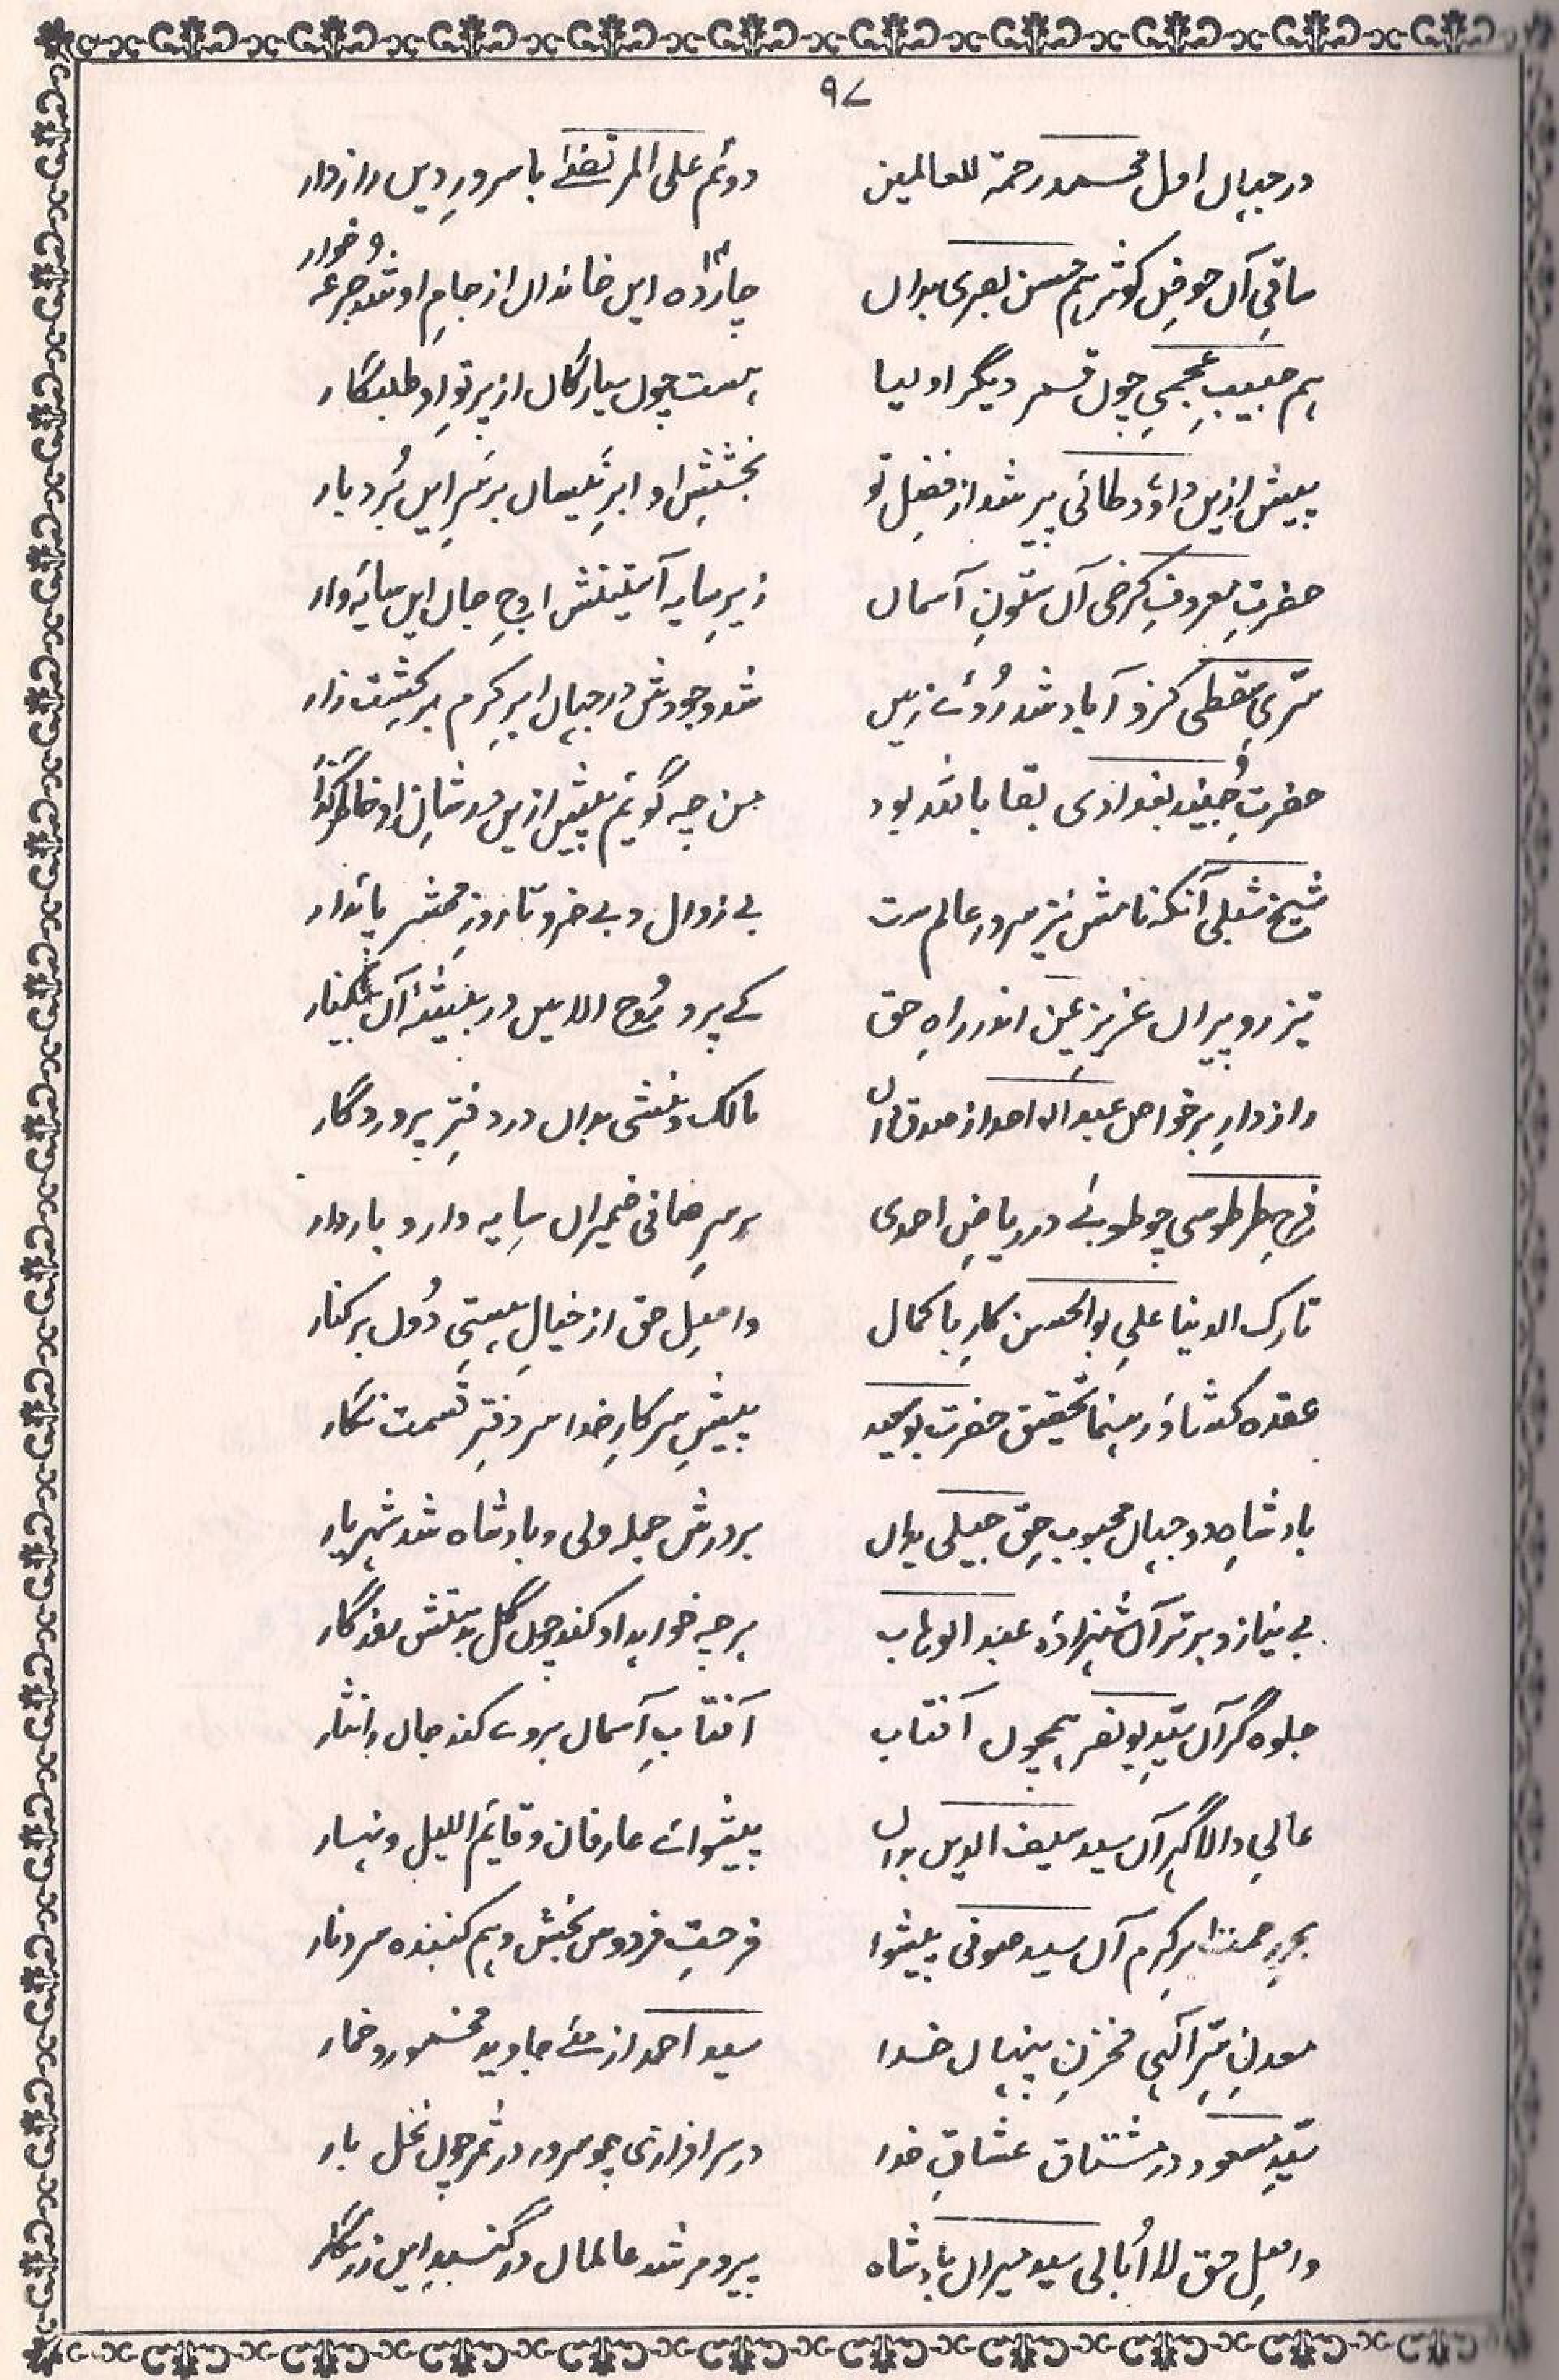 ۹۷
در جہاں اول محمد رحمۃ للعالمین دوئم علی المرتضےٰ با سرورِ دیں رازدار
ساقیِ آں حوضِ کوثر ہم حسن بصری بداں چاردہ ۱۴ ایں خانداں از جامِ او شد جرعہ خوار
ہم حبیبِ عجمیِ چوں قمر دیگر اولیا ہست چوں سیارگاں از پرتوِ او طلبگار
پیش ازیں داؤد طائی پیر شد از فضلِ تو بخششِ او ابرِ نیساں بر سرِ ایں بُردبار
حضرتِ معروفِ کرخی آں ستونِ آسماں زیرِ سایہ آستینش اوجِ جاں ایں سایہ دار
سّریِ سقطی کزو آباد شد رُوئے زمیں شد وجودش در جہاں ابرِ کرم بر کِشت زار
حضرتِ جُنید بغدادی بقا باللہ بود من چہ گوئم پیش ازیں در شانِ او
شیخ شبلی آنکہ نامش نیز سرورِ عالم ست بے زوال و بے ضرر تا روزِ محشر پائدار
تیز رو پیراں عزیزِ یمن اندر راہِ حق کے پرد رُوح الامیں در بیشۂ آں
رازدارِ برخواص عبدالواحد از صدق داں مالک و منشی بداں در دفترِ پروردگار
فرحِ طرطوسی چو طوبیٰ در ریاضِ احمدی بر سرِ صافی ضمیراں سایہ دار و باردار
تارک الدنیا علیِ بوالحسن کارِ باکمال واصلِ حق از خیالِ ہستیِ دُوں برکنار
عقدہ کشا و رہنما تحقیق حضرت بوسعید پیشِ سرکارِ خدا سر دفترِ قسمت نگار
بادشاہِ دو جہاں محبوبِ حق جیلی بداں بر درش جملہ ولی و بادشاہ شد شہریار
بے نیاز و برتر آں شہزادہ عبدالوہاب ہر چہ خواہد او کند چوں گل بدستش
جلوہ گر آں سّیدِ بونصر ہمچوں آفتاب آفتابِ آسماں بروے کند جاں را نثار
عالیِ والا گہر آں سید سیف الدین بداں پیشوائے عارفان و قایم اللیل و نہار
بحرِ رحمت ابرِ کرم آں سید صوفی پیشوا فرحتِ فردوس بخش و ہم کنندہ سرد نار
معدنِ سّرِ الٰہی مخزنِ پنہاں خدا سید احمد از مئے جاوید مخمور و خمار
سّیدِ مسعود در مشتاق عشاقِ خدا در سرافرازی چو سرو در ثمر چوں نخل بار
واصلِ حق لا اُبالی سید میراں بادشاہ پیر و مرشد عالماں در گنبدِ ایں زرنگار